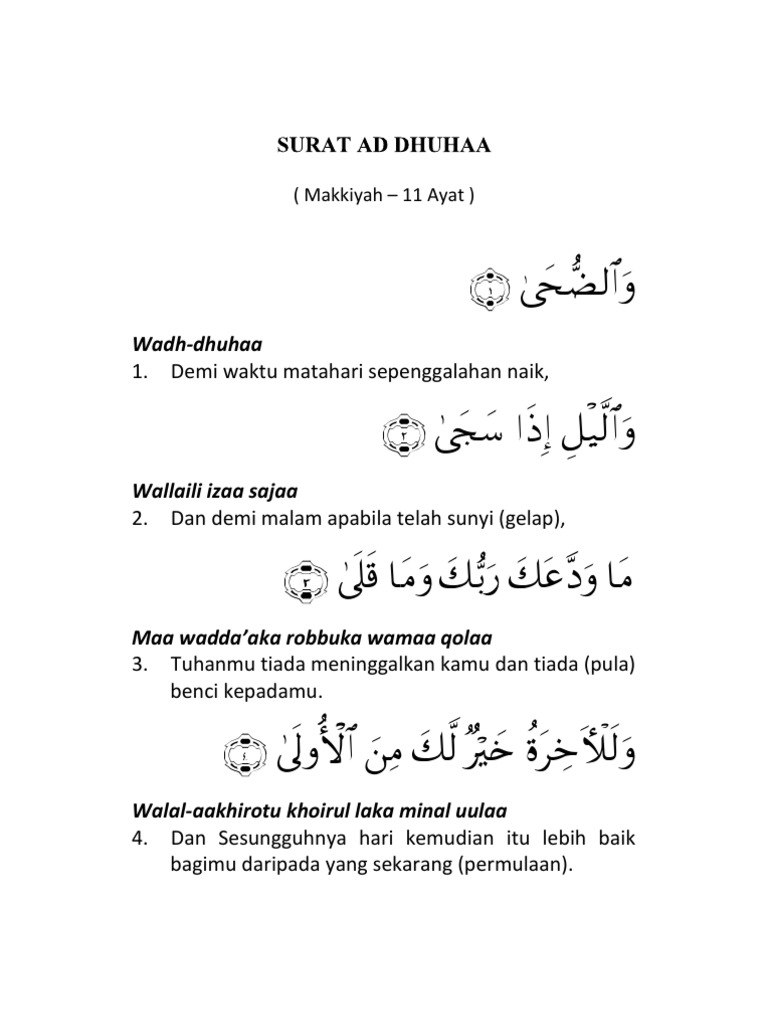 SURAT AD DHUHAA
( Makkiyah – 11 Ayat )
وَٱلضُّحَىٰ ١
Wadh-dhuhaa
1. Demi waktu matahari sepenggalahan naik,
وَٱلَّيۡلِ إِذَا سَجَىٰ ٢
Wallaili izaa sajaa
2. Dan demi malam apabila telah sunyi (gelap),
مَا وَدَّعَكَ رَبُّكَ وَمَا قَلَىٰ ٣
Maa wadda’aka robbuka wamaa qolaa
3. Tuhanmu tiada meninggalkan kamu dan tiada (pula)
benci kepadamu.
وَلَلۡأٓخِرَةُ خَيۡرٞ لَّكَ مِنَ ٱلۡأُولَىٰ ٤
Walal-aakhirotu khoirul laka minal uulaa
4. Dan Sesungguhnya hari kemudian itu lebih baik
bagimu daripada yang sekarang (permulaan).